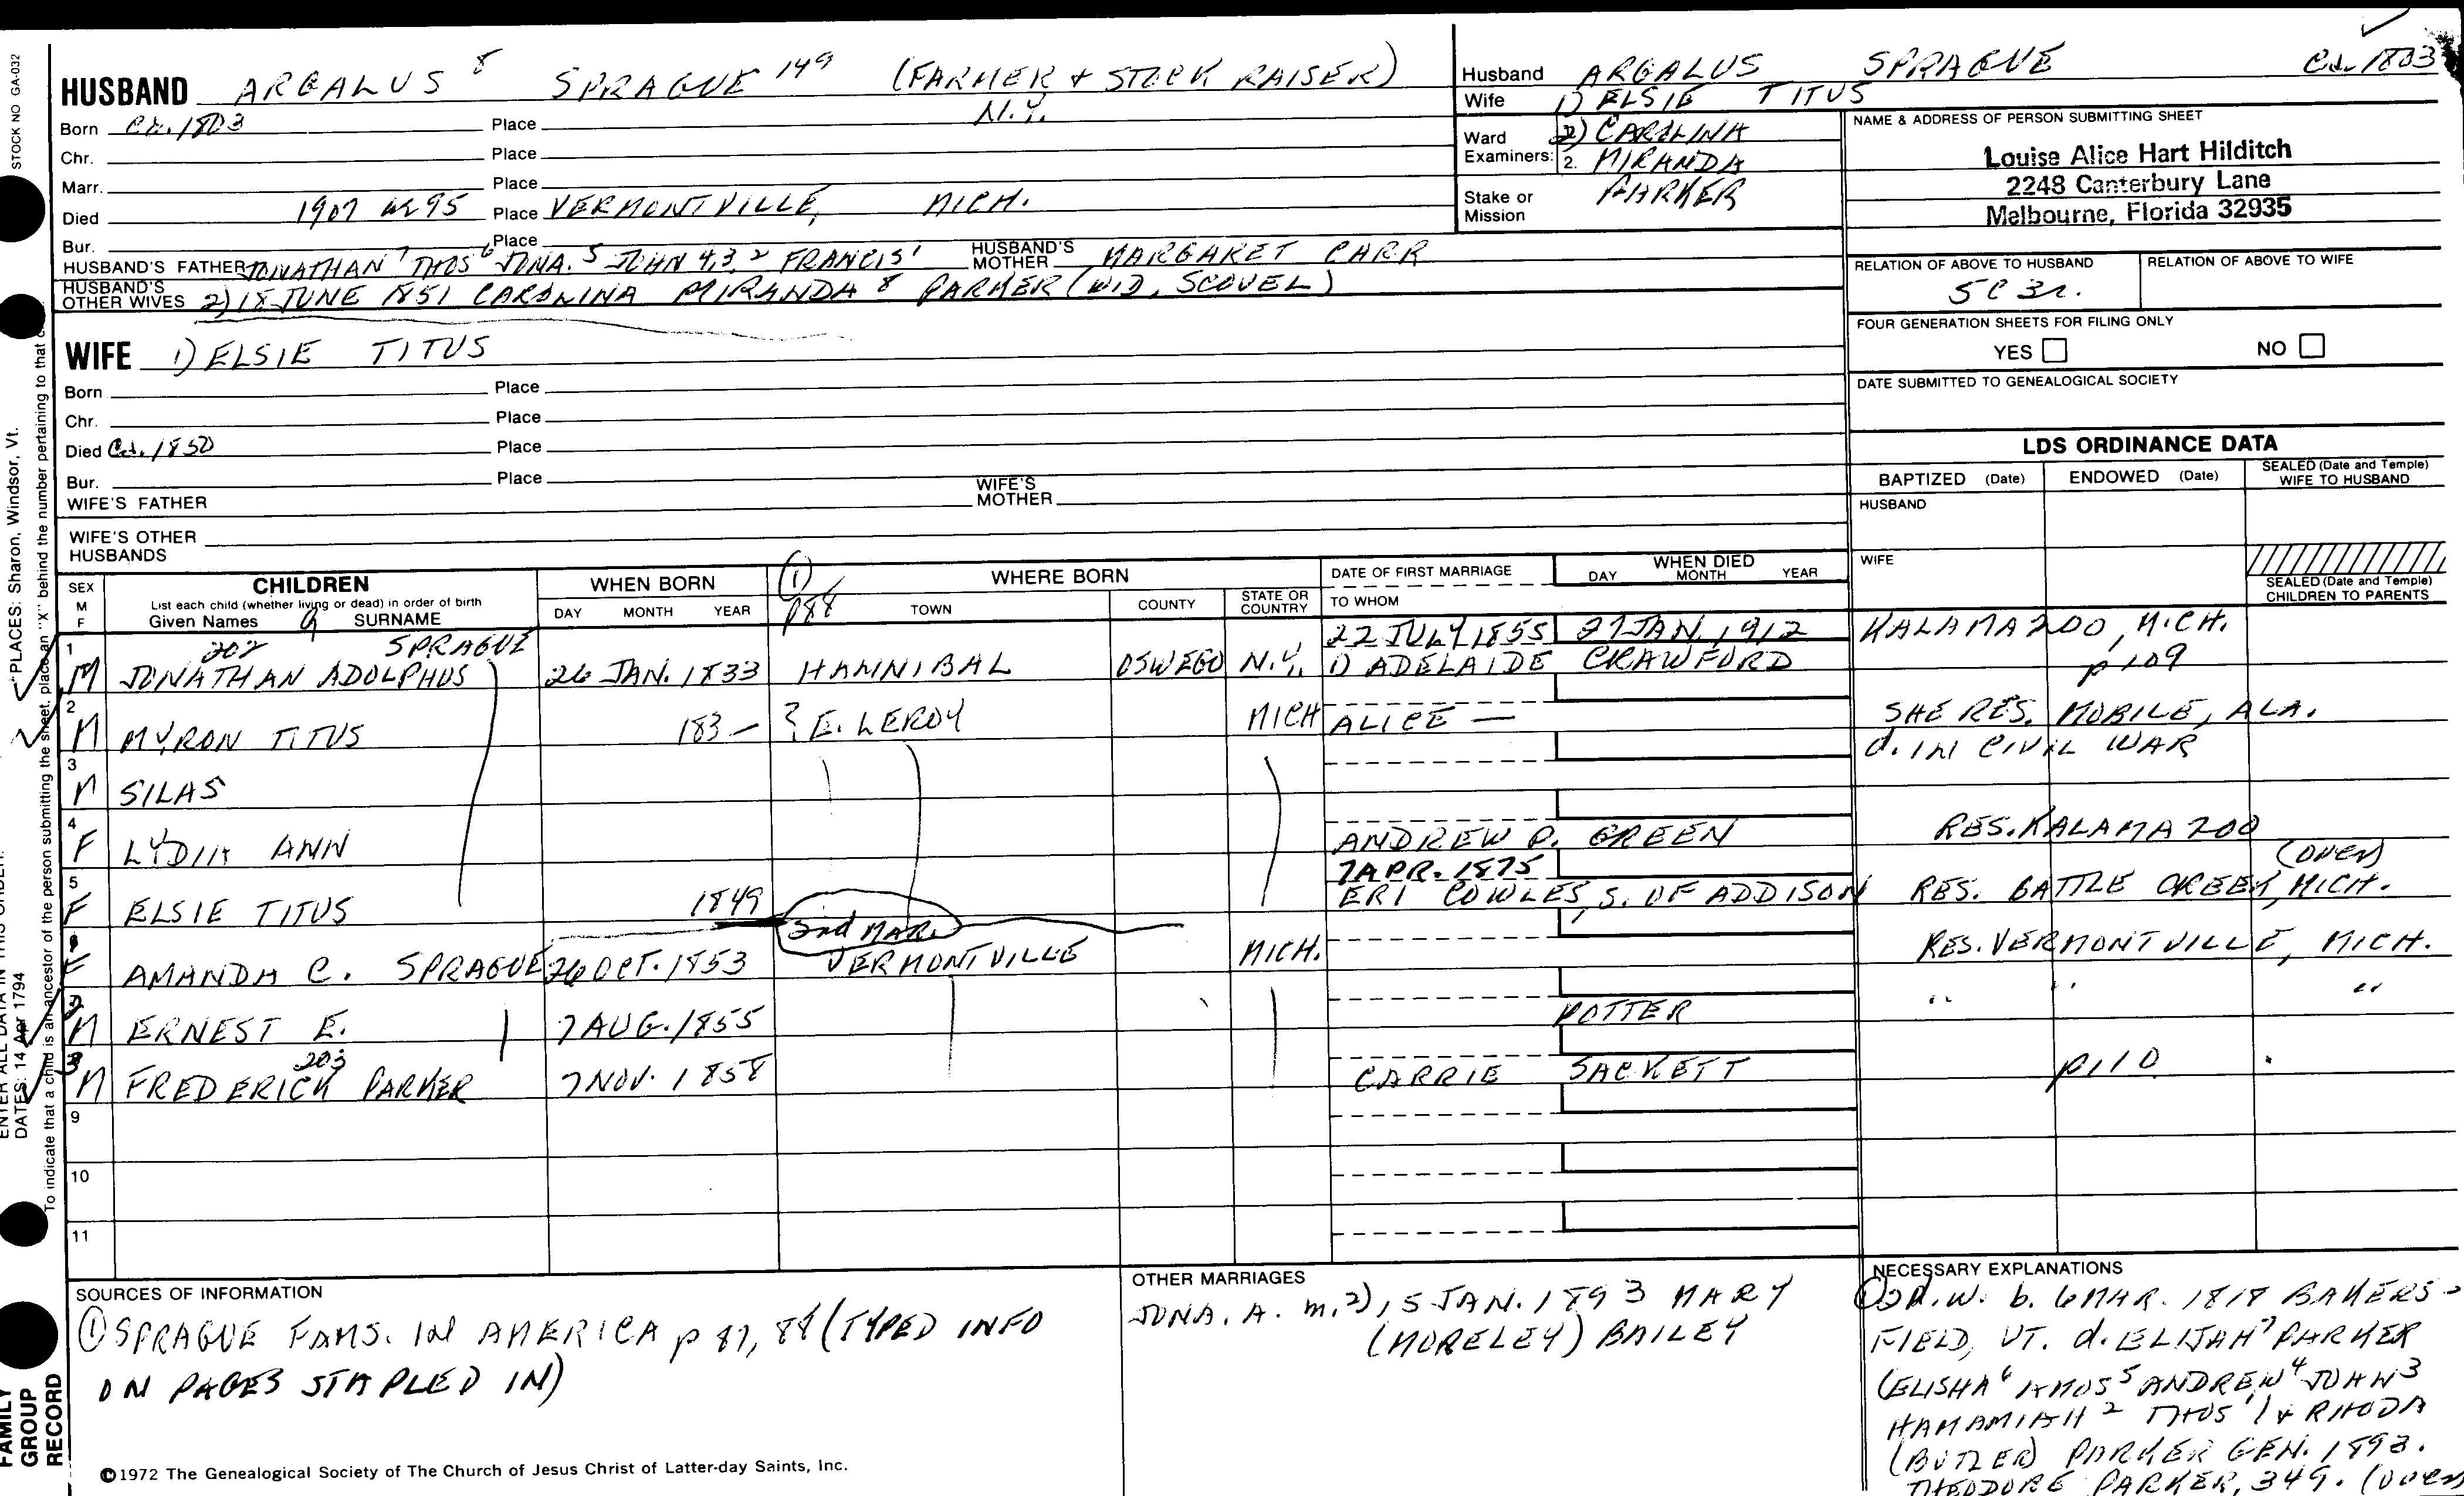 HUSBAND ARGALUS 8 SPRAGUE 149 (FARMER + STOCK RAISER)
Born Ca. 1803 Place N.Y.
Chr. Place
Marr. Place
Died 1907 ae 95 Place VERMONTVILLE, MICH.
Bur. Place
HUSBAND'S FATHER JONATHAN 7 THOS 6 JONA. 5 JOHN 4,3,2 FRANCIS 1 HUSBAND'S MOTHER MARGARET CARR
HUSBAND'S OTHER WIVES 2) 18 JUNE 1851 CAROLINA MIRANDA 8 PARKER (WID. SCOVEL)
WIFE 1) ELSIE TITUS
Born Place
Chr. Place
Died Ca. 1850 Place
Bur. Place
WIFE'S FATHER WIFE'S MOTHER
WIFE'S OTHER HUSBANDS
Husband ARGALUS SPRAGUE Ca. 1803
Wife 1) ELSIE TITUS
Ward Examiners: 2) CAROLINA
2. MIRANDA
Stake or Mission PARKER
NAME & ADDRESS OF PERSON SUBMITTING SHEET
Louise Alice Hart Hilditch
2248 Canterbury Lane
Melbourne, Florida 32935
RELATION OF ABOVE TO HUSBAND RELATION OF ABOVE TO WIFE
5C 3r.
FOUR GENERATION SHEETS FOR FILING ONLY
YES NO
DATE SUBMITTED TO GENEALOGICAL SOCIETY
LDS ORDINANCE DATA
BAPTIZED (Date) ENDOWED (Date) SEALED (Date and Temple) WIFE TO HUSBAND
HUSBAND
WIFE
SEALED (Date and Temple) CHILDREN TO PARENTS
SEX M F CHILDREN WHEN BORN (1) WHERE BORN DATE OF FIRST MARRIAGE WHEN DIED
List each child (whether living or dead) in order of birth DAY MONTH YEAR p88 TOWN COUNTY STATE OR COUNTRY TO WHOM DAY MONTH YEAR
Given Names 9 SURNAME
202 SPRAGUE 22 JULY 1855 27 JAN. 1912 KALAMAZOO, MICH.
1 M JONATHAN ADOLPHUS 26 JAN. 1833 HANNIBAL OSWEGO N.Y. 1) ADELAIDE CRAWFORD p 109
2 M MYRON TITUS 183- ? E. LEROY MICH ALICE — SHE RES. MOBILE, ALA.
d. IN CIVIL WAR
3 M SILAS
4 F LYDIA ANN ANDREW P. GREEN RES. KALAMAZOO
7 APR. 1875 (OVER)
5 F ELSIE TITUS 1849 ERI COWLES, S. OF ADDISON RES. BATTLE CREEK, MICH.
2nd MAR.
1 F AMANDA C. SPRAGUE 26 OCT. 1853 VERMONTVILLE MICH. RES. VERMONTVILLE, MICH.
2 M ERNEST E. 7 AUG. 1855 POTTER " " "
203
3 M FREDERICK PARKER 7 NOV. 1858 CARRIE SACKETT p110
9
10
11
SOURCES OF INFORMATION
(1) SPRAGUE FAMS. IN AMERICA p 87, 88 (TYPED INFO
ON PAGES STAPLED IN)
OTHER MARRIAGES
JONA. A. m. 2) 15 JAN. 1893 MARY
(MORELEY) BAILEY
NECESSARY EXPLANATIONS
2d. W. b. 6 MAR. 1818 BAKERS-
FIELD, VT. d. ELIJAH 7 PARKER
(ELISHA 6 AMOS 5 ANDREW 4 JOHN 3
HANANIAH 2 THOS 1) & RHODA
(BUTLER) PARKER GEN. 1893.
THEODORE PARKER, 349. (OVER)
©1972 The Genealogical Society of The Church of Jesus Christ of Latter-day Saints, Inc.
STOCK NO GA-032
*PLACES: Sharon, Windsor, Vt.
DATES: 14 Apr 1794
To indicate that a child is an ancestor of the person submitting the sheet, place an "X" behind the number pertaining to that
ENTER ALL DATA IN THIS ORDER:
FAMILY GROUP RECORD